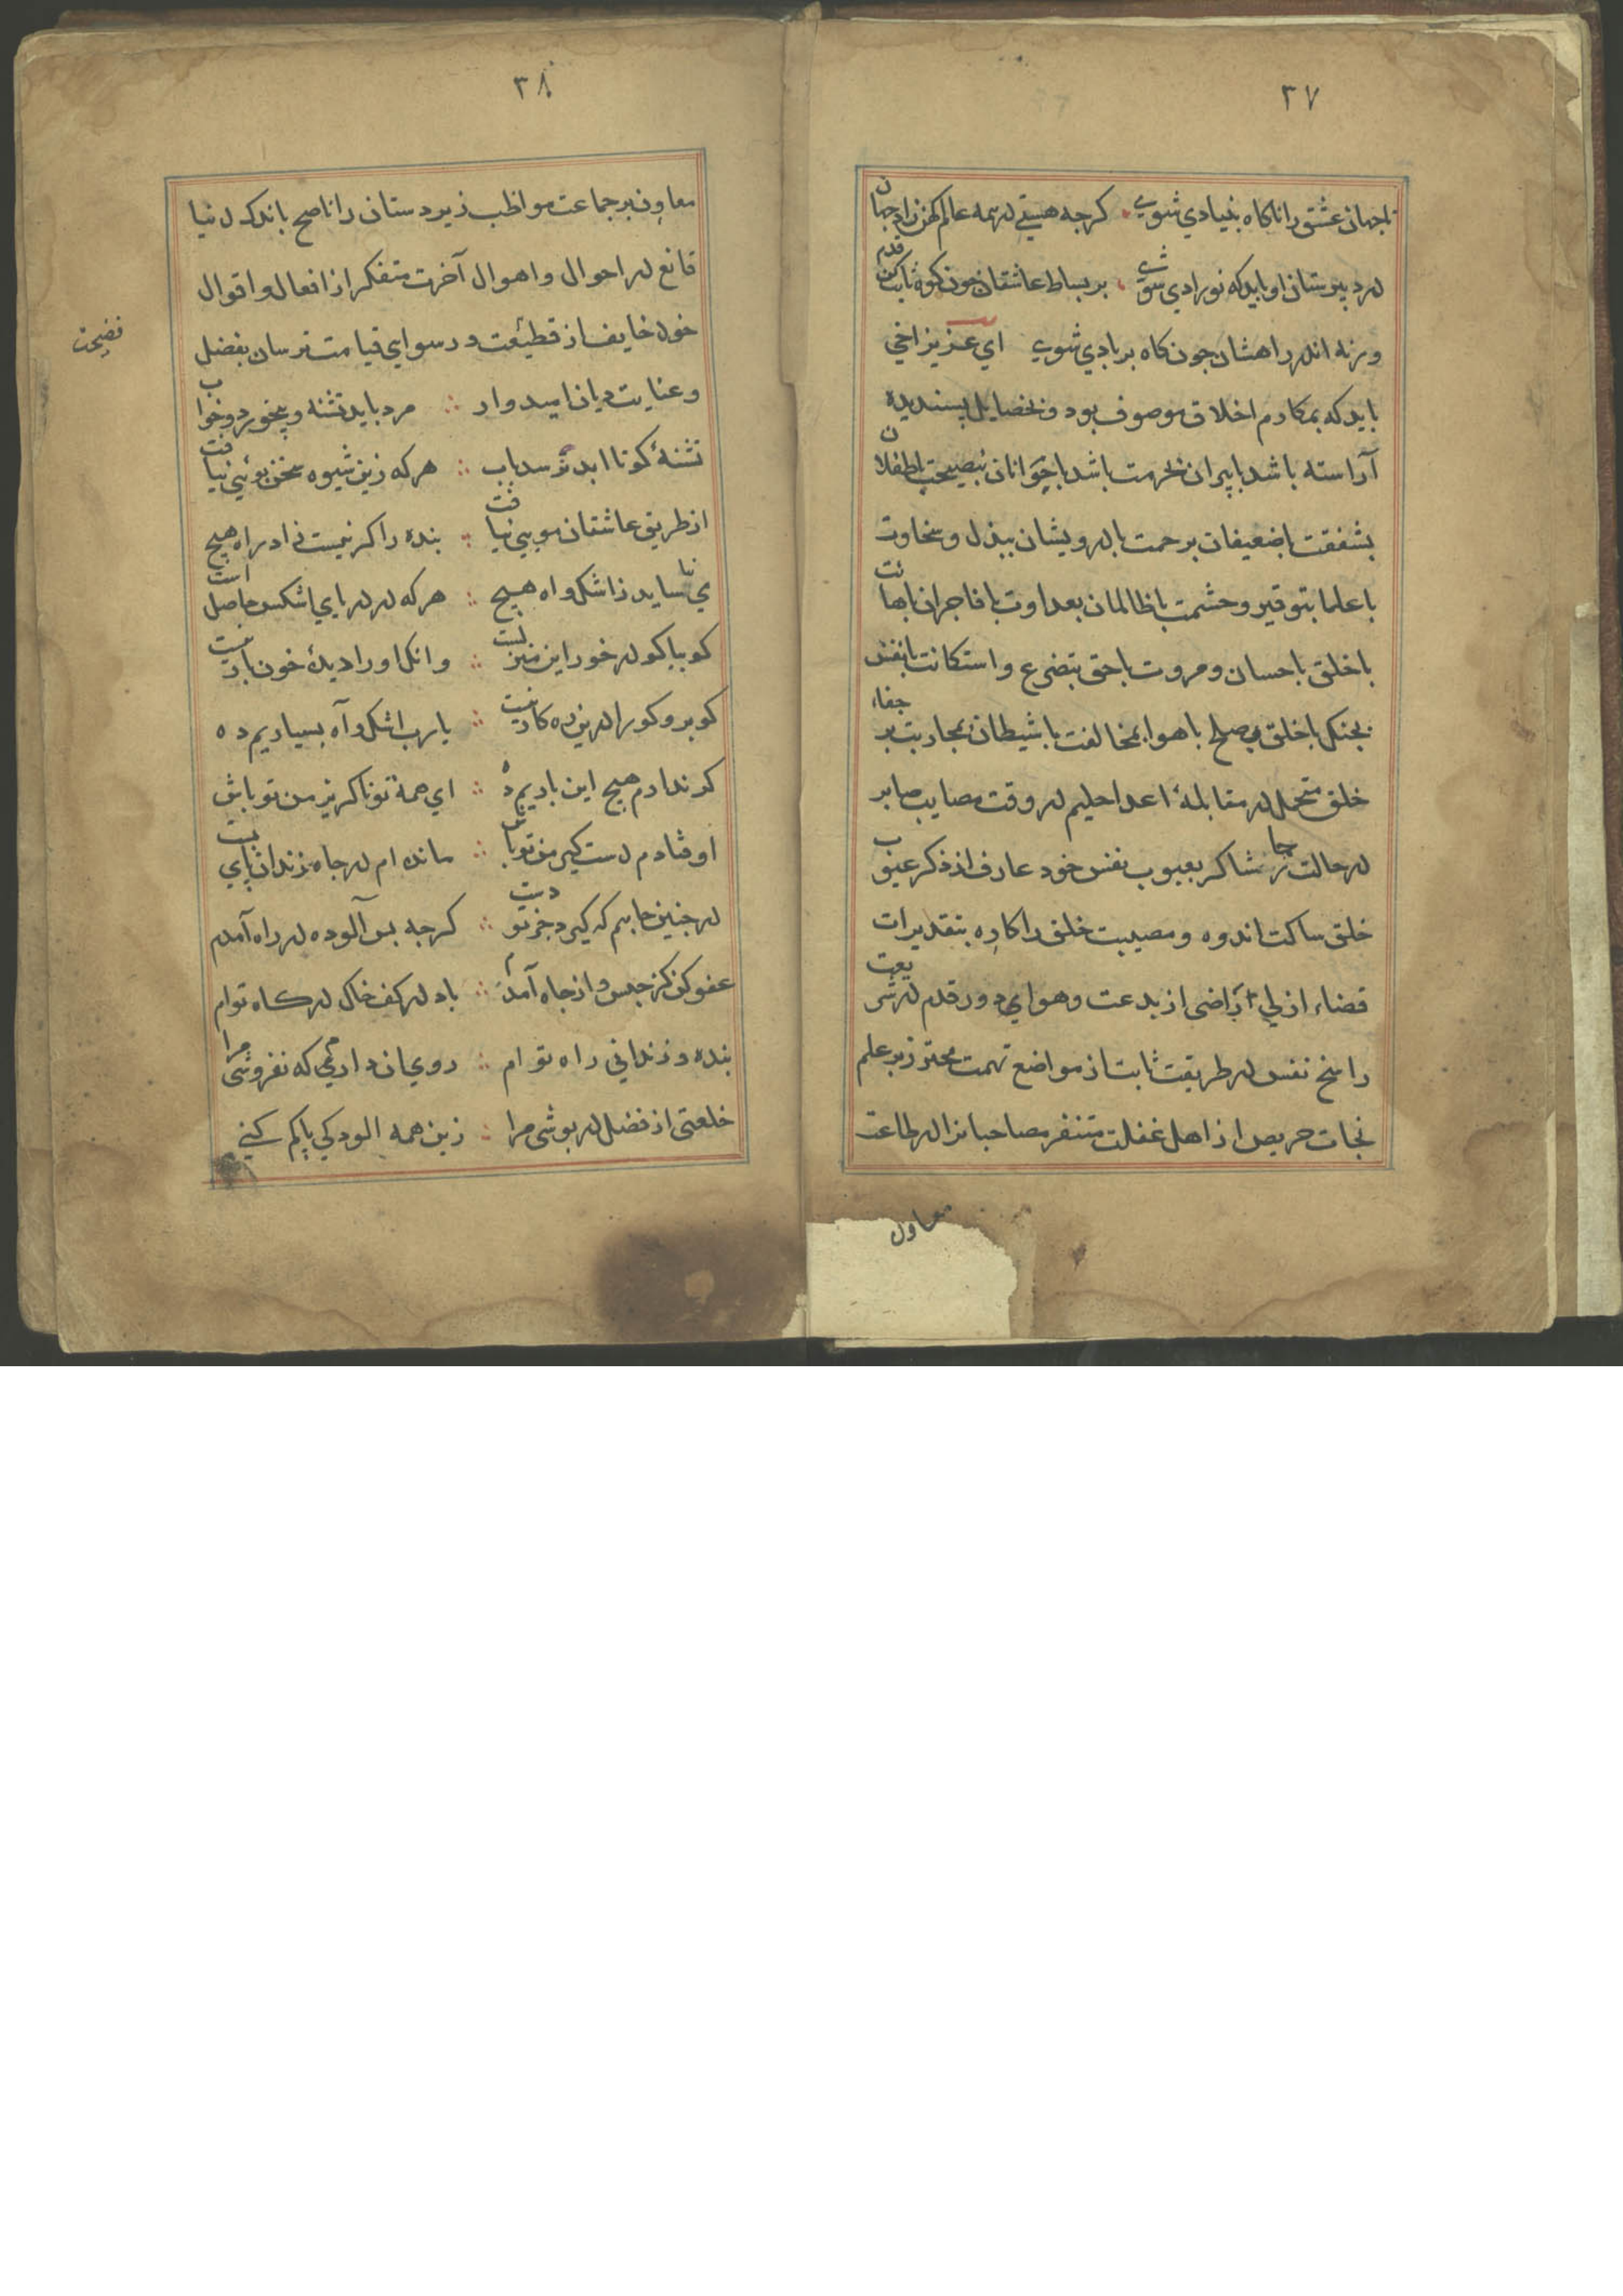 ۳۷
تا جهان عشق را ناکاه بنیادی شوی کرجه هستی در همه عالم کهن زاد جهان
در دبیرستان او باید که نو زادی شوی بر بساط عاشقان جون کوه ثابت کن قدم
ورنه اندر راهشان جون کاه بر بادی شوی ای عزیز اخی
باید که بمکارم اخلاق موصوف بود و بخصایل پسندیده
آراسته باشد با پیران بحرمت باشد با جوانان بنصیحت با طفلان
بشفقت با ضعیفان برحمت با درویشان ببذل و سخاوت
با علما بتوقیر و حشمت با ظالمان بعداوت با فاجران باهانت
با خلق باحسان و مروت با حق بتضرع و استکانت با نفس
بجنک با خلق بصلح با هوا بمخالفت با شیطان بمحاربت بر جفاء
خلق متحمل در مقابلهٔ اعدا حلیم در وقت مصایب صابر
در حالت رجا شاکر بعیوب نفس خود عارف از ذکر عیوب
خلق ساکت اندوه و مصیبت خلق را کاره بتقدیرات
قضاء ازلی راضی از بدعت و هوای دور قدم در شریعت
راسخ نفس در طریقت ثابت از مواضع تهمت محترز بر علم
نجات حریص از اهل غفلت متنفر مصاحبانرا در طاعت
معاون
۳۸
معاون بر جماعت مواظب زیردستان را ناصح باندک دنیا
قانع در احوال و اهوال آخرت متفکر از افعال و اقوال
خود خایف از قطیعت و رسوای قیامت ترسان بفضل
نصیحت
و عنایت دیان امیدوار مرد باید تشنه و بیخورد و خواب
تشنهٔ کو تا ابد نرسد باب هرکه زین شیوه سخن بوئی نیافت
از طریق عاشقان مویی نیافت بنده را کر نیست زاد راه هیچ
می نیاساید ز اشک و اه هیچ هرکه در دریای اشکس حاصل است
کو بیا کو در خور این منزلست وانک اورا دیدهٔ خون بار نیست
کو برو کورا درین ره کار نیست یارب اشک و آه بسیاریم ده
کر ندارم هیچ این باریم ده ای همه تو ناکزیر من تو باش
اوفتادم دست کیر من تو باش مانده ام در جاه زندان پای بست
در جنین جاهم که کیرد جز تو دست کرجه بس آلوده در راه آمدم
عفو کن کز حبس و از جاه آمدم باد در کف خاک درکاه توام
بنده و زندانی راه توام روی ان دارم که نفروشی مرا
خلعتی از فضل در بوشی مرا زین همه الودکی پاکم کنی